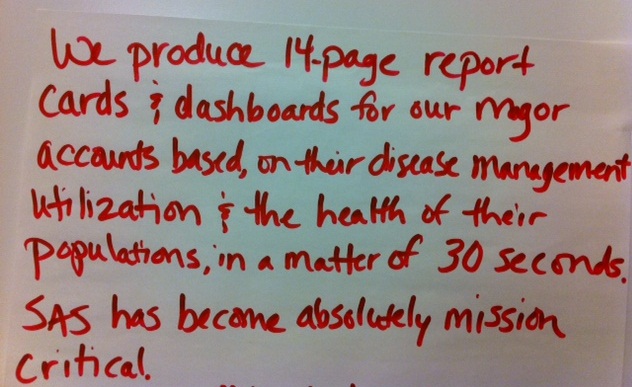 We produce 14-page report
cards & dashboards for our major
accounts based, on their disease management
utilization & the health of their
populations, in a matter of 30 seconds.
SAS has become absolutely mission
critical.